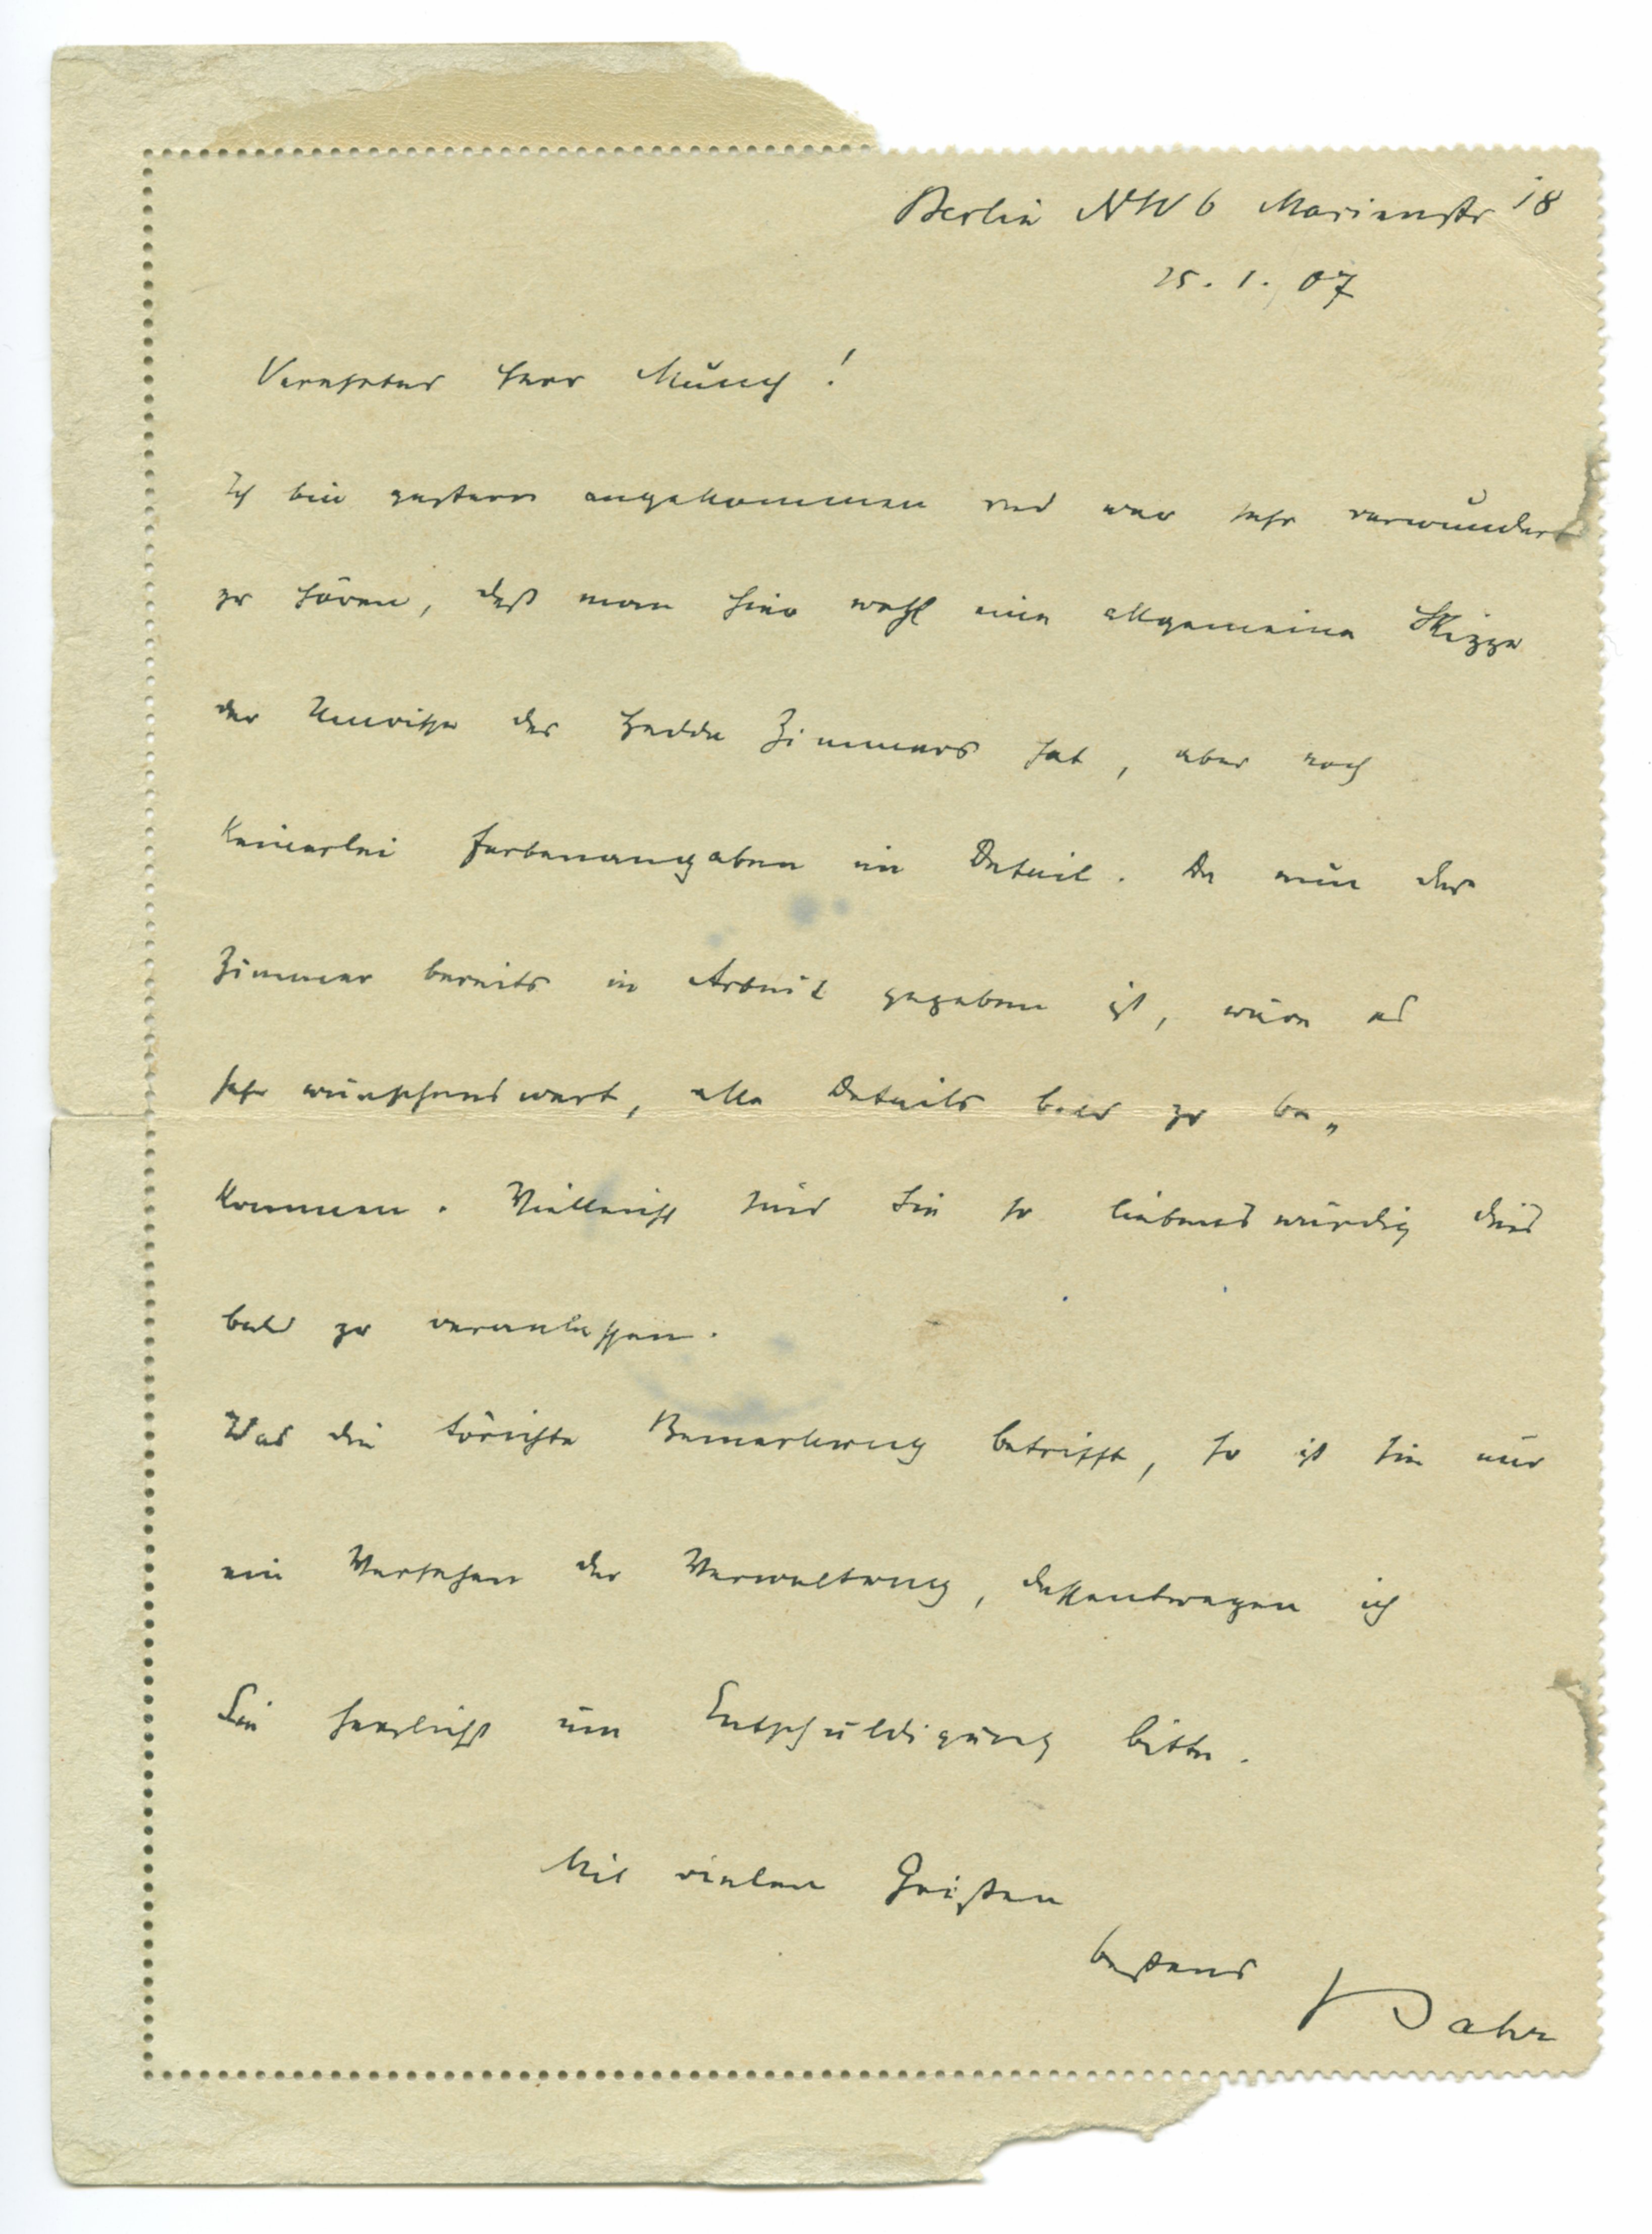 Berlin NW 6 Marienstr 18
25. 1. 07
Verehrter Herr Munch!
Ich bin gestern angekommen und war sehr verwundert
zu hören, daß man hier wohl eine allgemeine Skizze
der Umrisse des Hedda Zimmers hat, aber noch
keinerlei Farbenangaben im Detail. Da nun das
Zimmer bereits in Arbeit gegeben ist, wäre es
sehr wünschenswert, alle Details bald zu be„
kommen. Vielleicht sind Sie so liebenswürdig dies
bald zu veranlassen.
Was die törichte Bemerkung betrifft, so ist sie nur
ein Versehen der Verwaltung, dessentwegen ich
Sie herzlichst um Entschuldigung bitte.
Mit vielen Grüßen
bestens Bahr